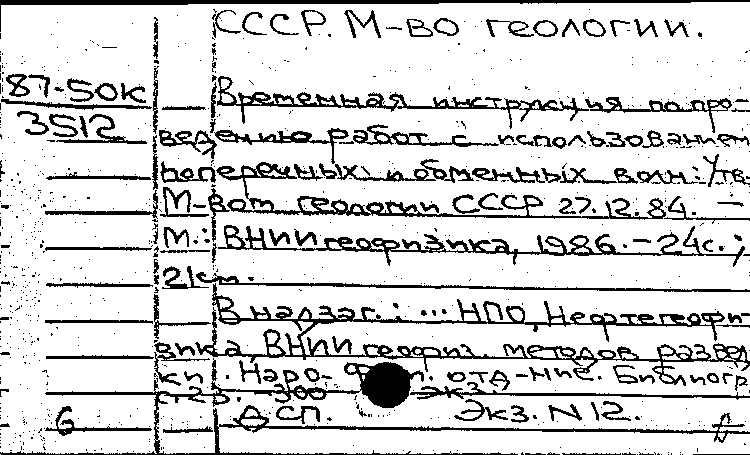 СССР. М-во геологии.
87-50К
3512
Временная инструкция по про-
ведению работ с использованием
поперечных и обменных волн: Утв.
М-вом геологии СССР 27.12.84. –
М.: ВНИИгеофизика, 1986. – 24с.;
21см.
В надзаг.: ... НПО, Нефтегеофи-
зика, ВНИИ геофиз. методов развед
ки. Наро- отд-ние. Библиогр
300 экз.
6 ДСП. Экз. N12.